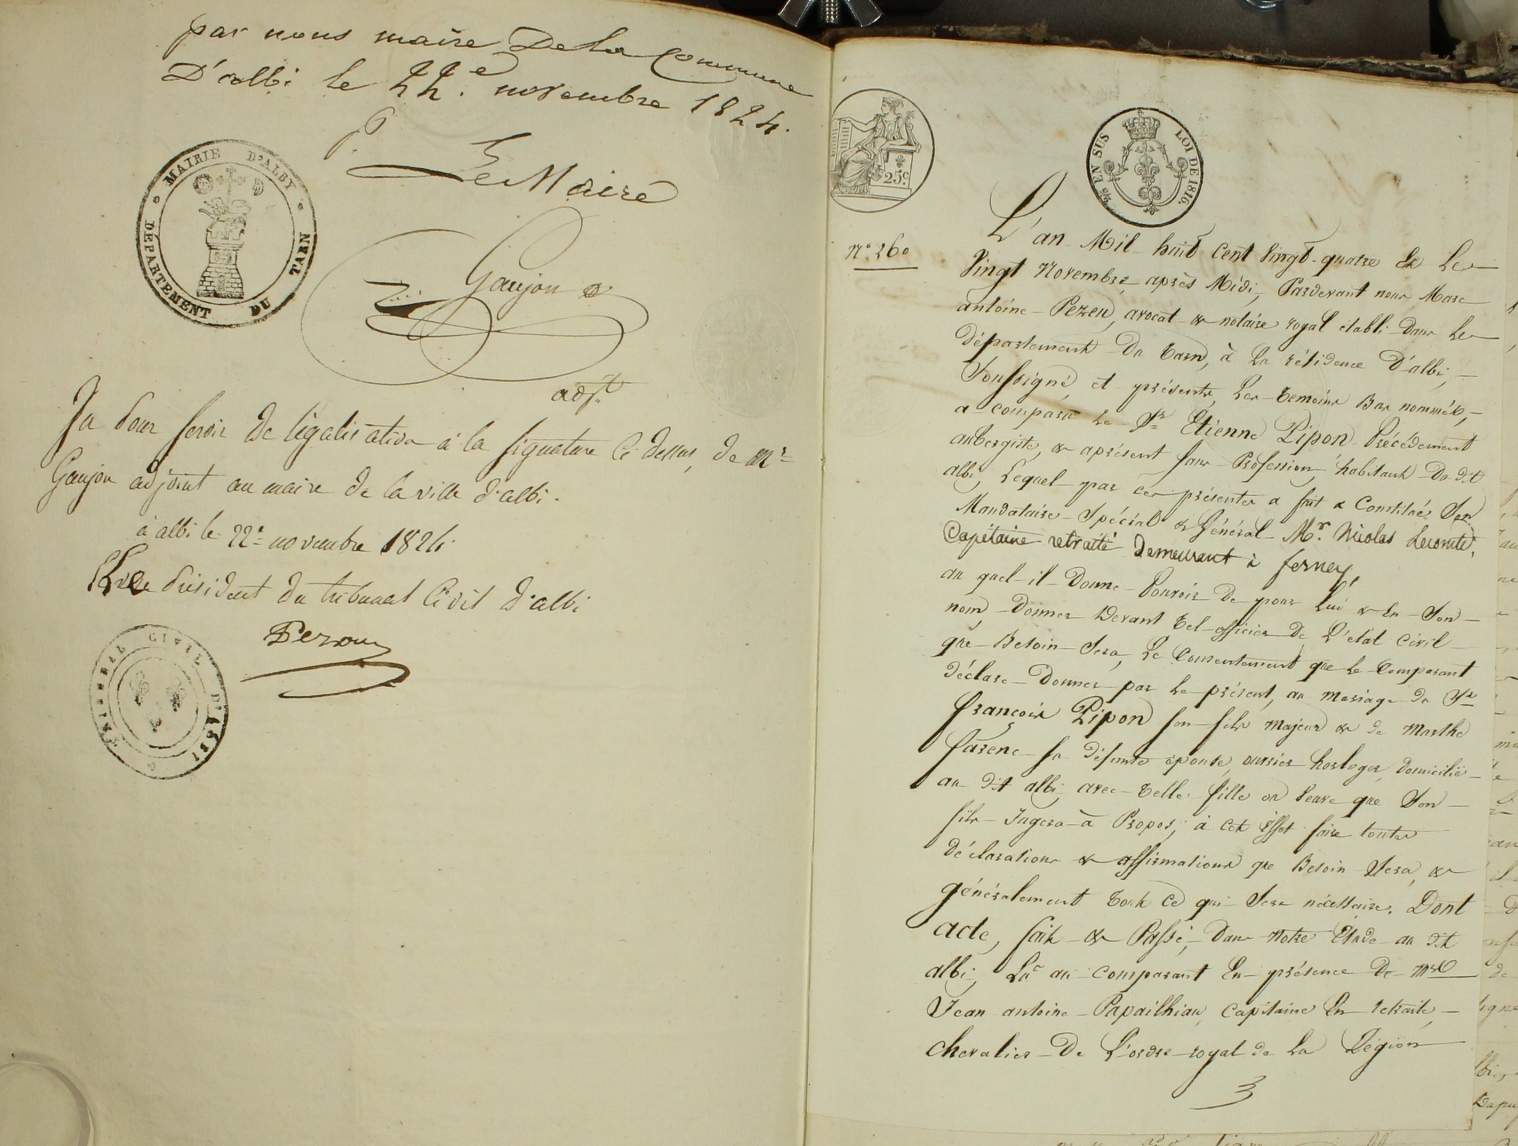 par nous maire De la Commune
D'albi le 22e. novembre 1824.
p.
Le Maire
MAIRIE D'ALBY
DÉPARTEMENT DU TARN
Gaujou
adjt
Vu pour servir de légalisation à la signature ci dessus, de mr
Gaujou adjoint au maire de la ville d'albi.
à albi le 22e novembre 1824.
président du tribunal Civil d'albi
Pezous
TRIBUNAL CIVIL D'ALBI
25c.
EN SUS LOI DE 1816.
No. 260
L'an Mil huit Cent vingt-quatre & Le
Vingt Novembre, après Midi, Pardevant nous Marc
antoine Pezen, avocat & notaire royal établi dans Le
département Du Tarn, à La résidence D'albi,
Soussigné, et présents, Les temoins Bas nommés,
a comparu le Sr. Etienne Pipon Précédement
aubergiste, & aprésent sans Profession, habitant Du dit
albi, Lequel par ces présentes a fait & Constitué Son
Mandataire Spécial & Général Mr. Nicolas Lecomte,
Capitaine retraité demeurant à ferney,
au quel il Donne Pouvoir De pour Lui & En Son
nom, Donner Devant tel officier De L'état Civil
que Besoin Sera, Le Consentement que Le Comparant
déclare Donner par Le présent, au mariage du Sr
françois Pipon son fils Majeur & de Marthe
farenc sa défunte épouse, ouvrier horloger, domicilié
au dit albi, avec telle fille ou Veuve que Son
fils Jugera à Propos, à cet Effet faire toutes
déclarations & affirmations que Besoin Sera, &
généralement tout ce qui Sera nécessaire. Dont
acte, fait & Passé, Dans Notre Etude au dit
albi, Lu au comparant En présence De
Jean antoine Papailhiau, Capitaine En retraite,
chevalier De L'ordre royal de La Légion